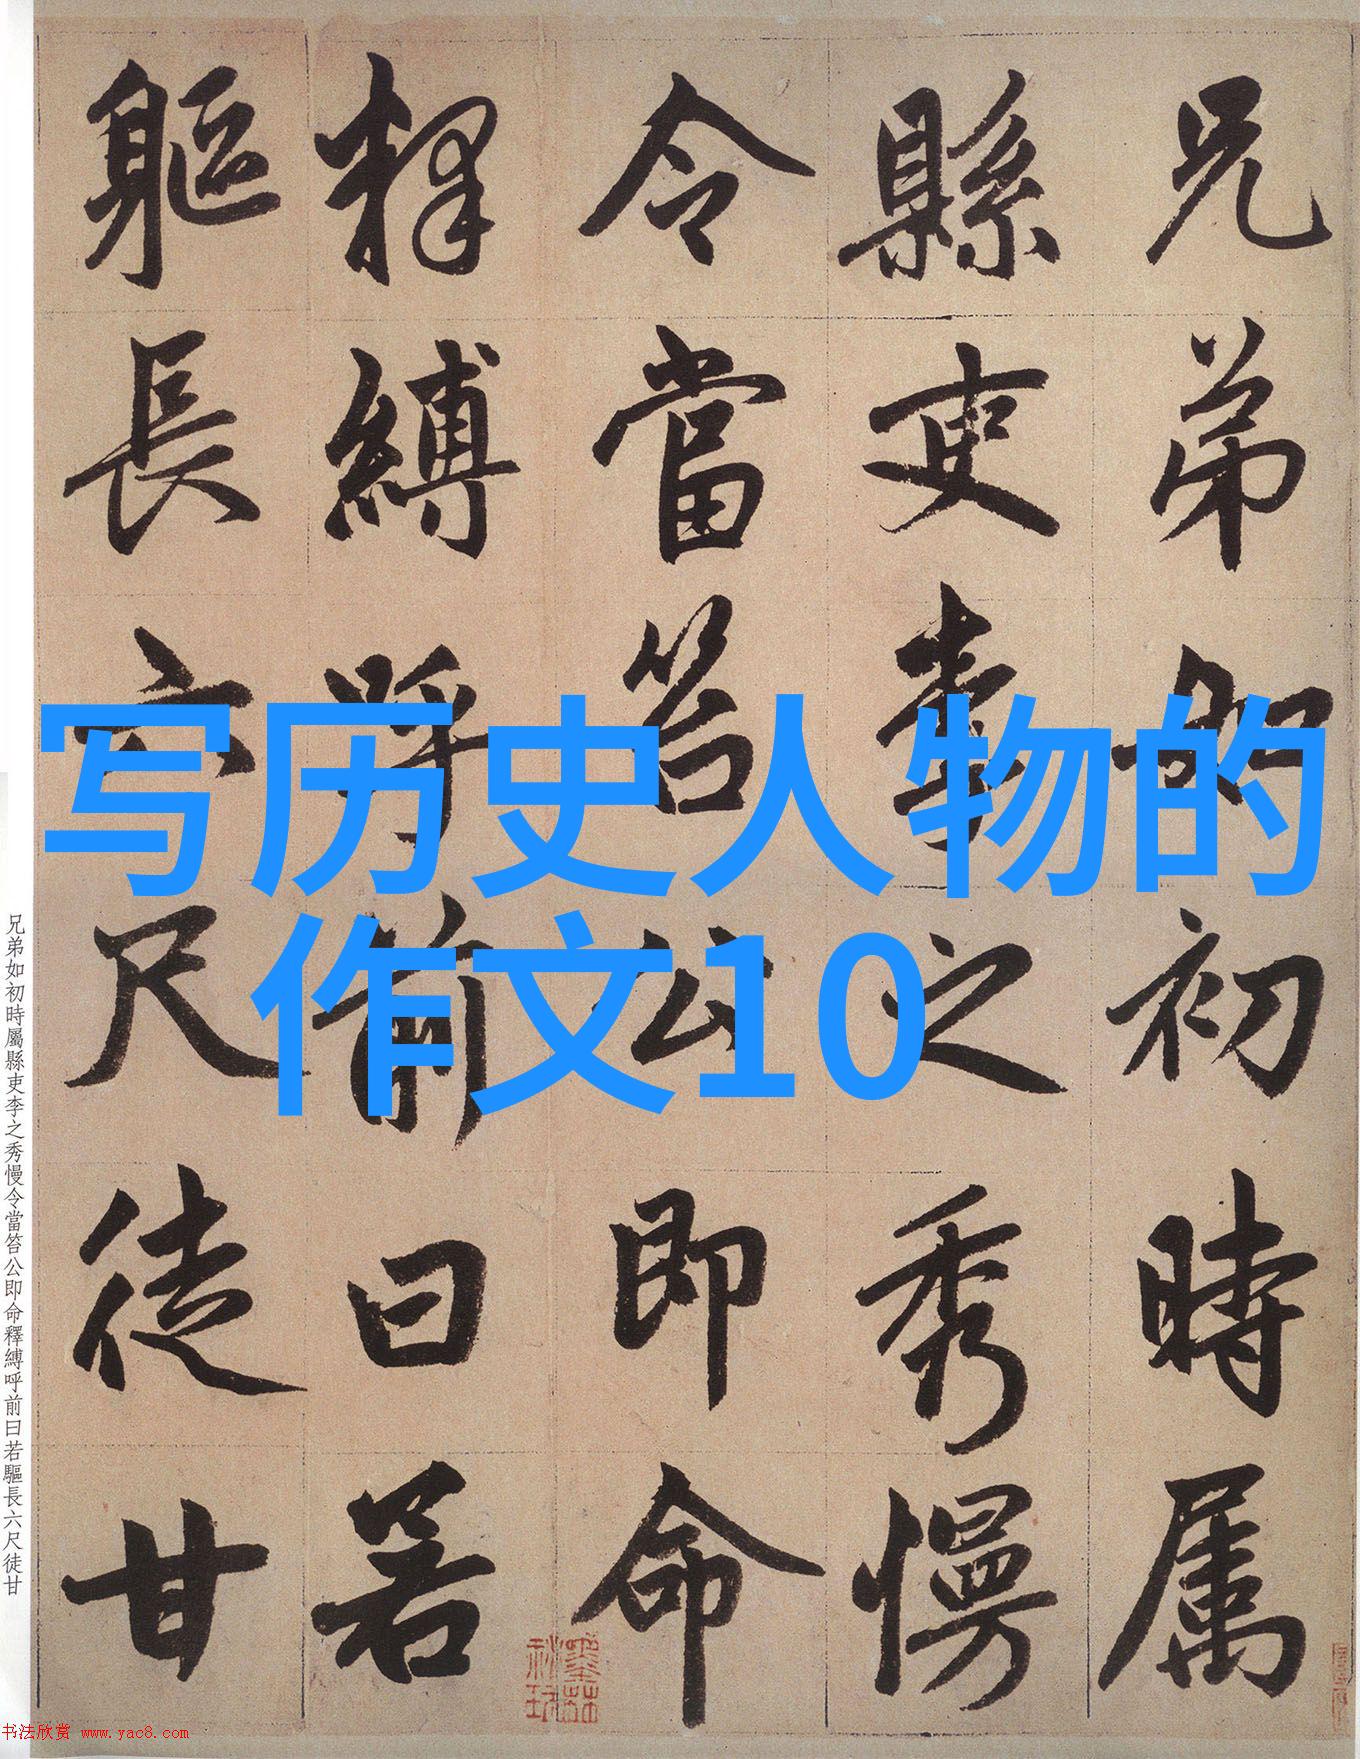 兄弟如初時属
縣吏李之秀慢
令當笞公即命
釋縛呼前曰若
軀長六尺徒甘
写历史人物的
作文10
兄弟如初時屬縣吏李之秀慢令當笞公即命釋縛呼前曰若驅長六尺徒甘
书法欣赏 www.yac8.com